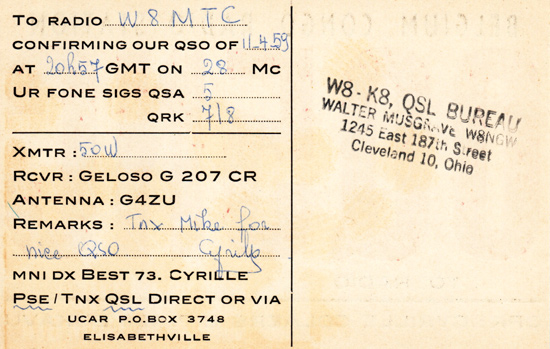 TO RADIO W8MTC
CONFIRMING OUR QSO OF 11.4.59
AT 20h57 GMT ON 28 MC
UR FONE SIGS QSA 5
QRK 7/8
XMTR : 50W
RCVR : GELOSO G 207 CR
ANTENNA : G4ZU
REMARKS : Tnx Mike for
nice QSO Cyrille
MNI DX BEST 73. CYRILLE
PSE / TNX QSL DIRECT OR VIA
UCAR P.O.BOX 3748
ELISABETHVILLE
W8-K8, QSL BUREAU
WALTER MUSGRAVE W8NGW
1245 East 187th Street
Cleveland 10, Ohio